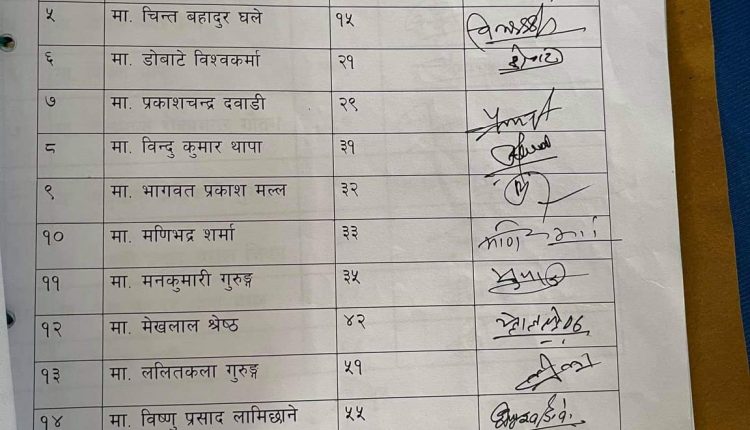 ५ मा. चिन्त बहादुर घले १५
६ मा. डोबाटे विश्वकर्मा २१
७ मा. प्रकाशचन्द्र दवाडी २९
८ मा. विन्दु कुमार थापा ३१
९ मा. भागवत प्रकाश मल्ल ३२
१० मा. मणिभद्र शर्मा ३३
११ मा. मनकुमारी गुरुङ्ग ३५
१२ मा. मेखलाल श्रेष्ठ ४२
१३ मा. ललितकला गुरुङ्ग ५१
१४ मा. विष्णु प्रसाद लामिछाने ५५